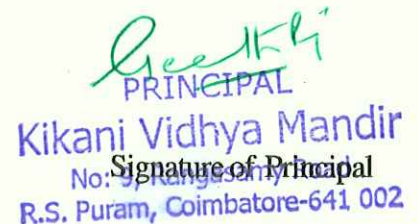 PRINCIPAL
Kikani Vidhya Mandir
Signature of Principal
No: 9, Rangasamy Road
R.S. Puram, Coimbatore-641 002